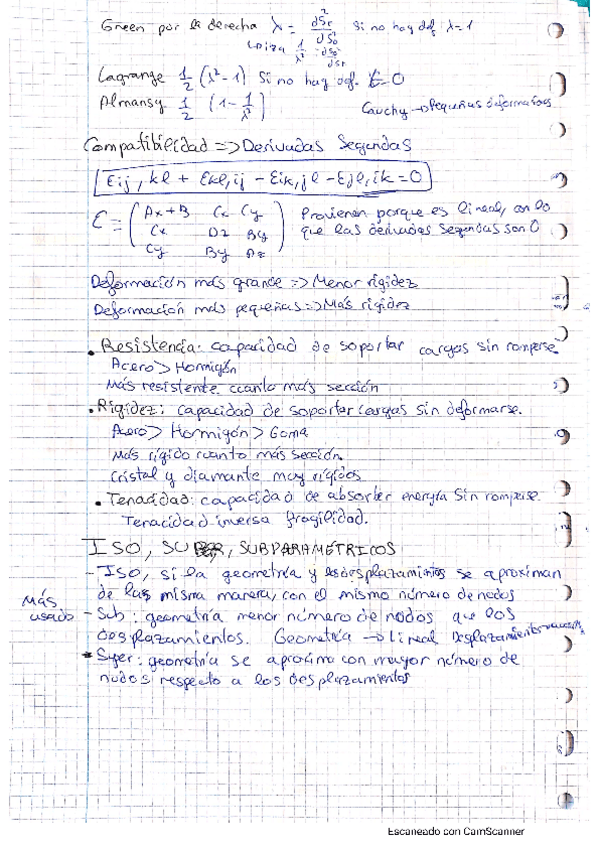 Green por la derecha λ = dSf² / dS0² si no hay def λ=1
1/λ² dS0² / dSf
Lagrange 1/2 (λ²-1) Si no hay def. E=0
Almansy 1/2 (1 - 1/λ²)
Cauchy → Pequeñas deformaciones
Compatibilidad => Derivadas Segundas
Eij,kl + Ekl,ij - Eik,jl - Ejl,ik = 0
E = (Ax+B Cx Cy
Cx Dz By
Cy By Az)
Provienen porque es lineal, con lo
que las derivadas segundas son 0
Deformación más grande => Menor rigidez
Deformación más pequeñas => Más rigidez
• Resistencia: capacidad de soportar cargas sin romperse
Acero > Hormigón
Más resistente cuanto más sección
• Rigidez: capacidad de soportar cargas sin deformarse.
Acero > Hormigón > Goma
Más rígido cuanto más sección.
Cristal y diamante muy rígidos
• Tenacidad: capacidad de absorber energía sin romperse.
Tenacidad inversa fragilidad.
ISO, SUPER, SUBPARAMÉTRICOS
- ISO, si la geometría y los desplazamientos se aproximan
de las misma manera, con el mismo número de nodos
Más usado
- Sub: geometría menor número de nodos que los
desplazamientos. Geometría → lineal Desplazamientos
* Super: geometría se aproxima con mayor número de
nodos respecto a los desplazamientos
Escaneado con CamScanner